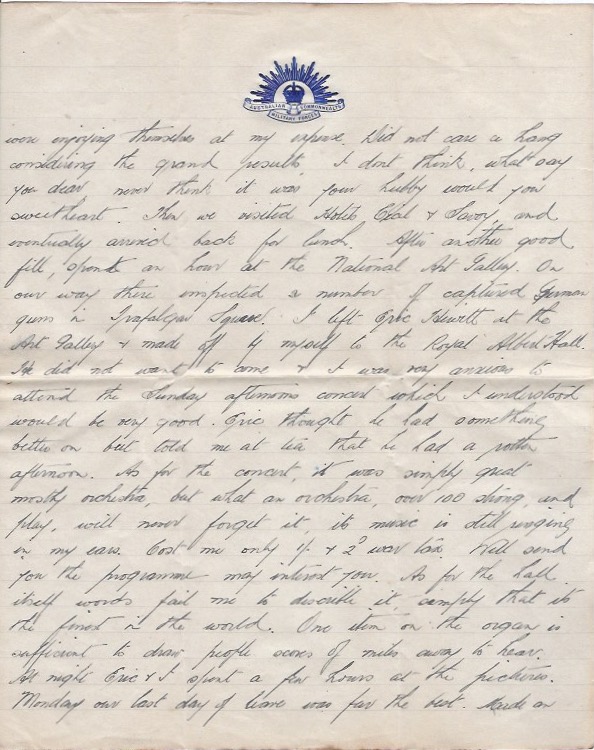 AUSTRALIAN COMMONWEALTH
MILITARY FORCES
were enjoying themselves at my expense. Did not care a hang
considering the grand results. I dont think, what say
you dear, never think it was your hubby would you
sweetheart. Then we visited Hotels, Cecil & Savoy, and
eventually arrived back for lunch. After another good
fill, spent an hour at the National Art Gallery. On
our way there inspected a number of captured German
guns in Trafalgar Square. I left Eric Hewitt at the
Art Gallery & made off by myself to the Royal Albert Hall.
He did not want to come & I was very anxious to
attend the Sunday afternoon concert which I understood
would be very good. Eric thought he had something
better on but told me at tea that he had a rotten
afternoon. As for the concert, it was simply great
mostly orchestra, but what an orchestra, over 100 strong, and
play, will never forget it, its music is still ringing
in my ears. Cost me only 1/- & 2d war tax. Will send
you the programme may interest you. As for the hall
itself words fail me to describe it, simply that its
the finest in the world. One item on the organ is
sufficient to draw people scores of miles away to hear.
At night Eric & I spent a few hours at the pictures.
Monday our last day of leave was far the best. Made an